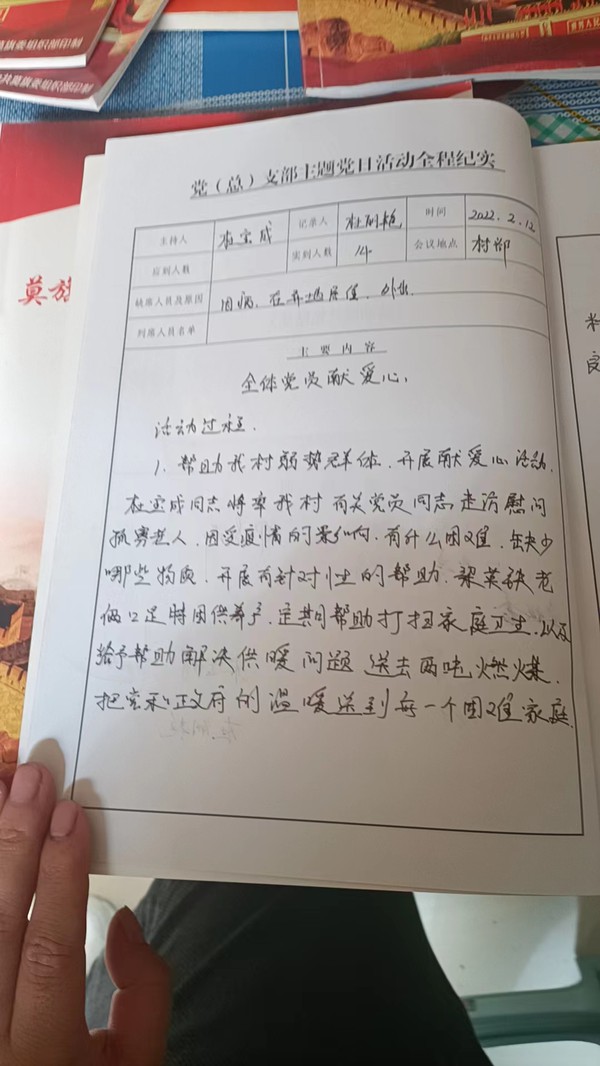 旗委组织部印制
共莫旗委组织部印制
莫旗
党（总）支部主题党日活动全程纪实
主持人 宝成 记录人 时间 2022.2.12
应到人数 实到人数 14 会议地点 村部
缺席人员及原因 因病、在异地居住、外出.
列席人员名单
主要内容
全体党员献爱心,
活动过程.
1. 帮助我村弱势群体、开展献爱心活动.
宝成同志将率我村有关党员同志走访慰问
孤寡老人、因受疫情的影响、有什么困难、缺少
哪些物质、开展有针对性的帮助、梁英 老
俩口是特困供养户、定期帮助打扫家庭卫生.以及
给予帮助解决供暖问题 送去两吨燃煤.
把党和政府的温暖送到每一个困难家庭.